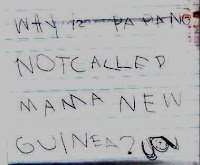 WHY is PA PANG
NOTCALLED
MAMA NEW
GUINEA?